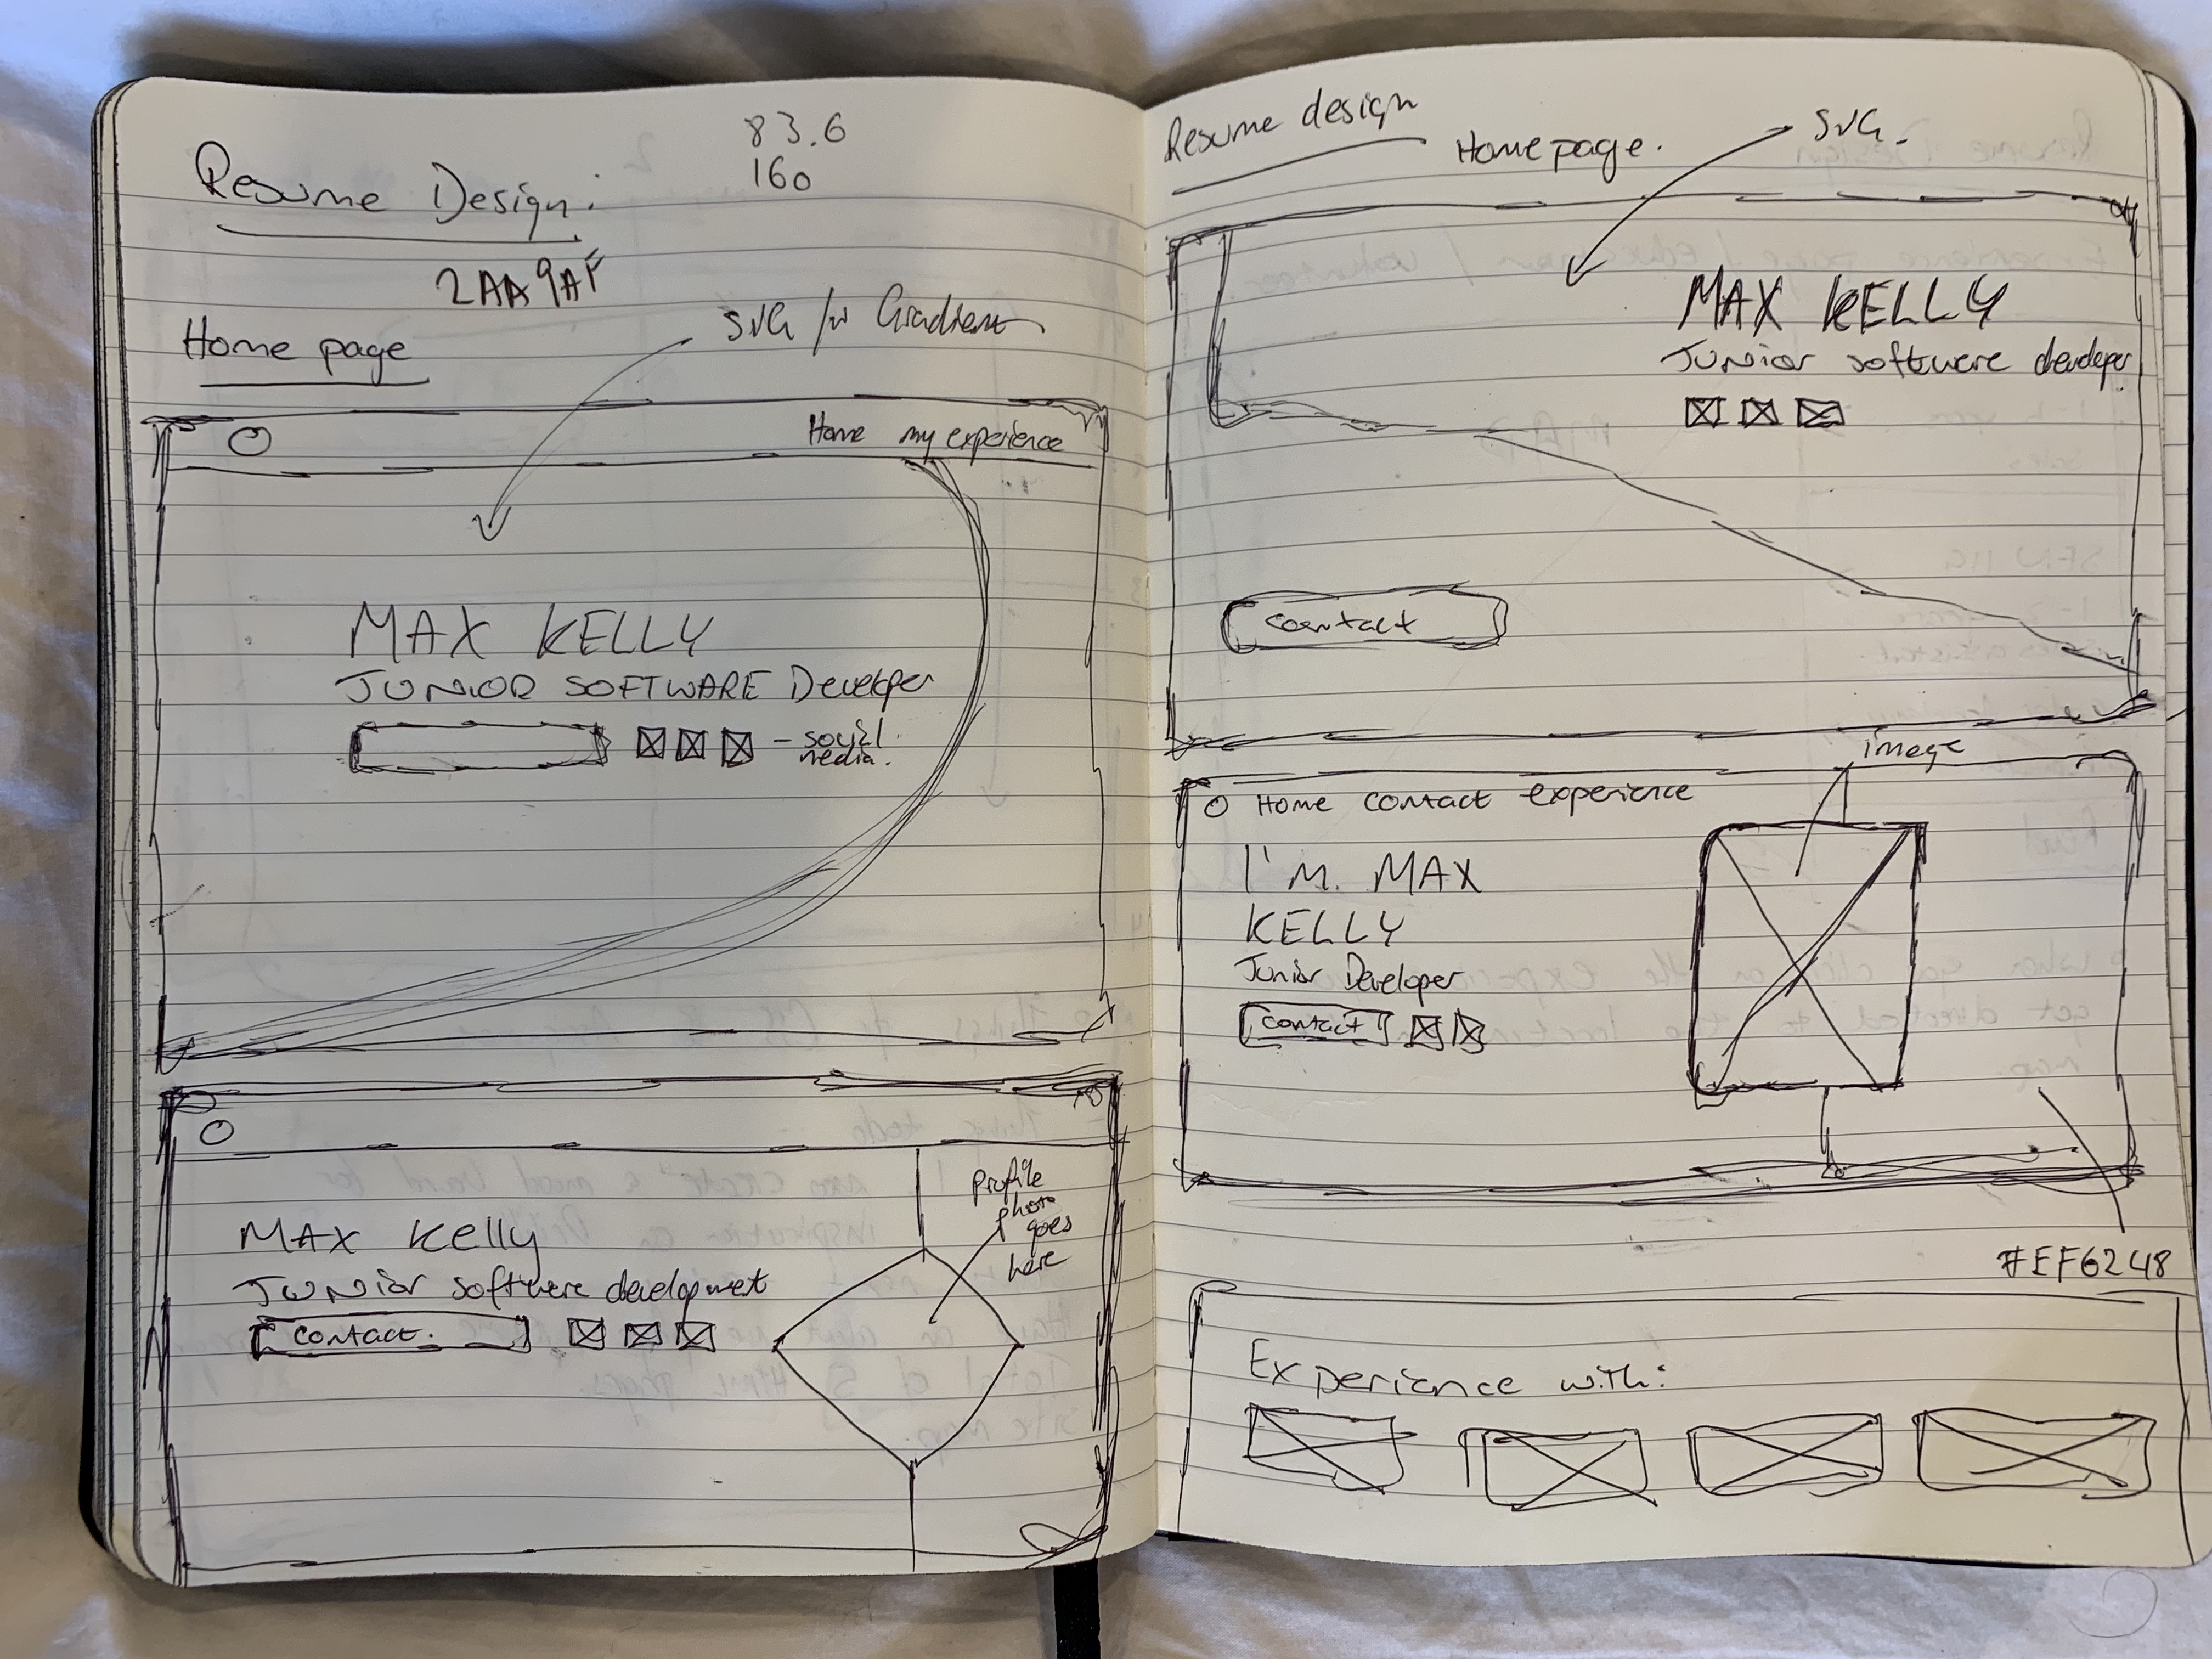 Resume Design:
83.6
160
2AA9AF
Home page
SVG /w Gradient
Home my experience
MAX KELLY
JUNIOR SOFTWARE Developer
- social
media.
MAX Kelly
JUNior software development
contact.
Profile
photo
goes
here
Resume design
Homepage.
SVG.
MAX KELLY
JUNior software developer
contact
image
Home contact experience
I'M. MAX
KELLY
Junior Developer
contact
#EF6248
Experience with: